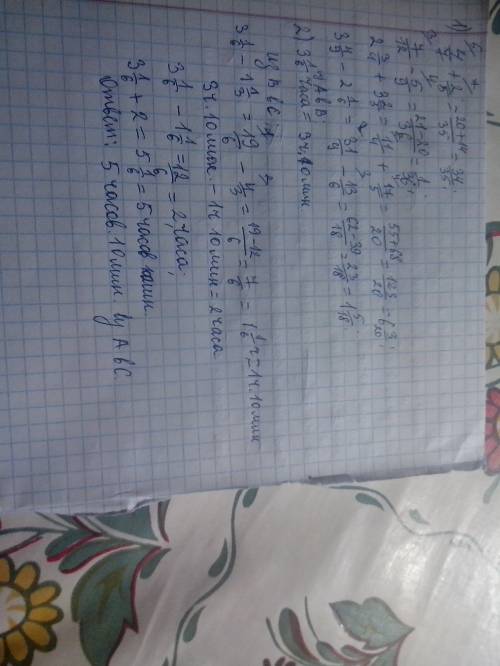 1) 4/7 + 2/5 = 20+14/35 = 34/35;
7/12 - 5/9 = 21-20/36 = 1/36;
2 3/4 + 3 2/5 = 11/4 + 17/5 = 55+68/20 = 123/20 = 6 3/20;
3 4/9 - 2 1/6 = 31/9 - 13/6 = 62-39/18 = 23/18 = 1 5/18
2) 3 1/6 часа = 3ч. 10мин
из В в С
3 1/6 - 1 1/3 = 19/6 - 4/3 = 19-12/6 = 7/6 = 1 1/6 ч = 1ч. 10мин
3ч. 10мин - 1ч 10мин = 2 часа
3 1/6 - 1 1/6 = 12/6 = 2 часа;
3 1/6 + 2 = 5 1/6 = 5 часов 10мин
Ответ: 5 часов 10мин. из А в С.